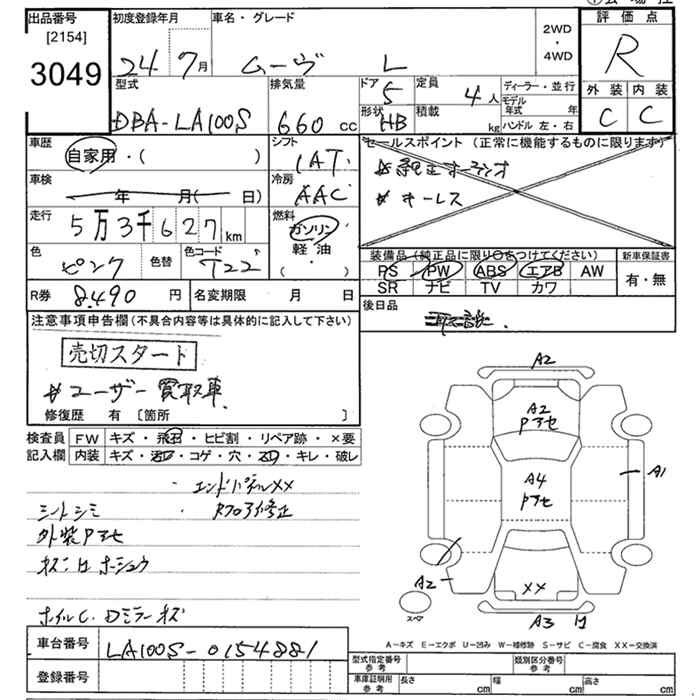 出品番号
[2154]
3049
初度登録年月
24 7月
車名・グレード
ムーヴ L
2WD
・
4WD
評価点
R
外装 内装
C C
型式
DBA-LA100S
排気量
660 cc
ドア 5
形状 HB
定員 4人
積載 kg
ディーラー・並行
モデル年式 年
ハンドル 左・右
車歴
自家用・( )
シフト
IAT
車検
年 月( 日)
冷房
AAC
走行
5万3千627km
燃料
ガソリン
軽油
・( )
色
ピンク
色替
色コード
T22
R券 8,490 円
名変期限 月 日
セールスポイント(正常に機能するものに限ります)
# 純正オーディオ
# キーレス
装備品(純正品に限り○をつけてください)
PS PW ABS エアB AW
SR ナビ TV カワ
新車保証書
有・無
後日品
取説
注意事項申告欄(不具合内容等は具体的に記入して下さい)
売切スタート
# ユーザー買取車
修復歴 有 〔箇所 〕
検査員 FW キズ・飛石・ヒビ割・リペア跡・×要
記入欄 内装 キズ・汚レ・コゲ・穴・スレ・キレ・破レ
・エンドパネルXX
シートシミ
外装Pアセ
ホイルC. Dミラーキズ
A2
A2
Pアセ
A4
Pアセ
A1
A2
XX
A3
スペア
A-キズ E-エクボ U-凹み W-補修跡 S-サビ C-腐食 XX-交換済
車台番号 LA100S-0154881
登録番号
型式指定番号
参考
類別区分番号
参考
車庫証明用
参考
長さ cm 幅 cm 高さ cm